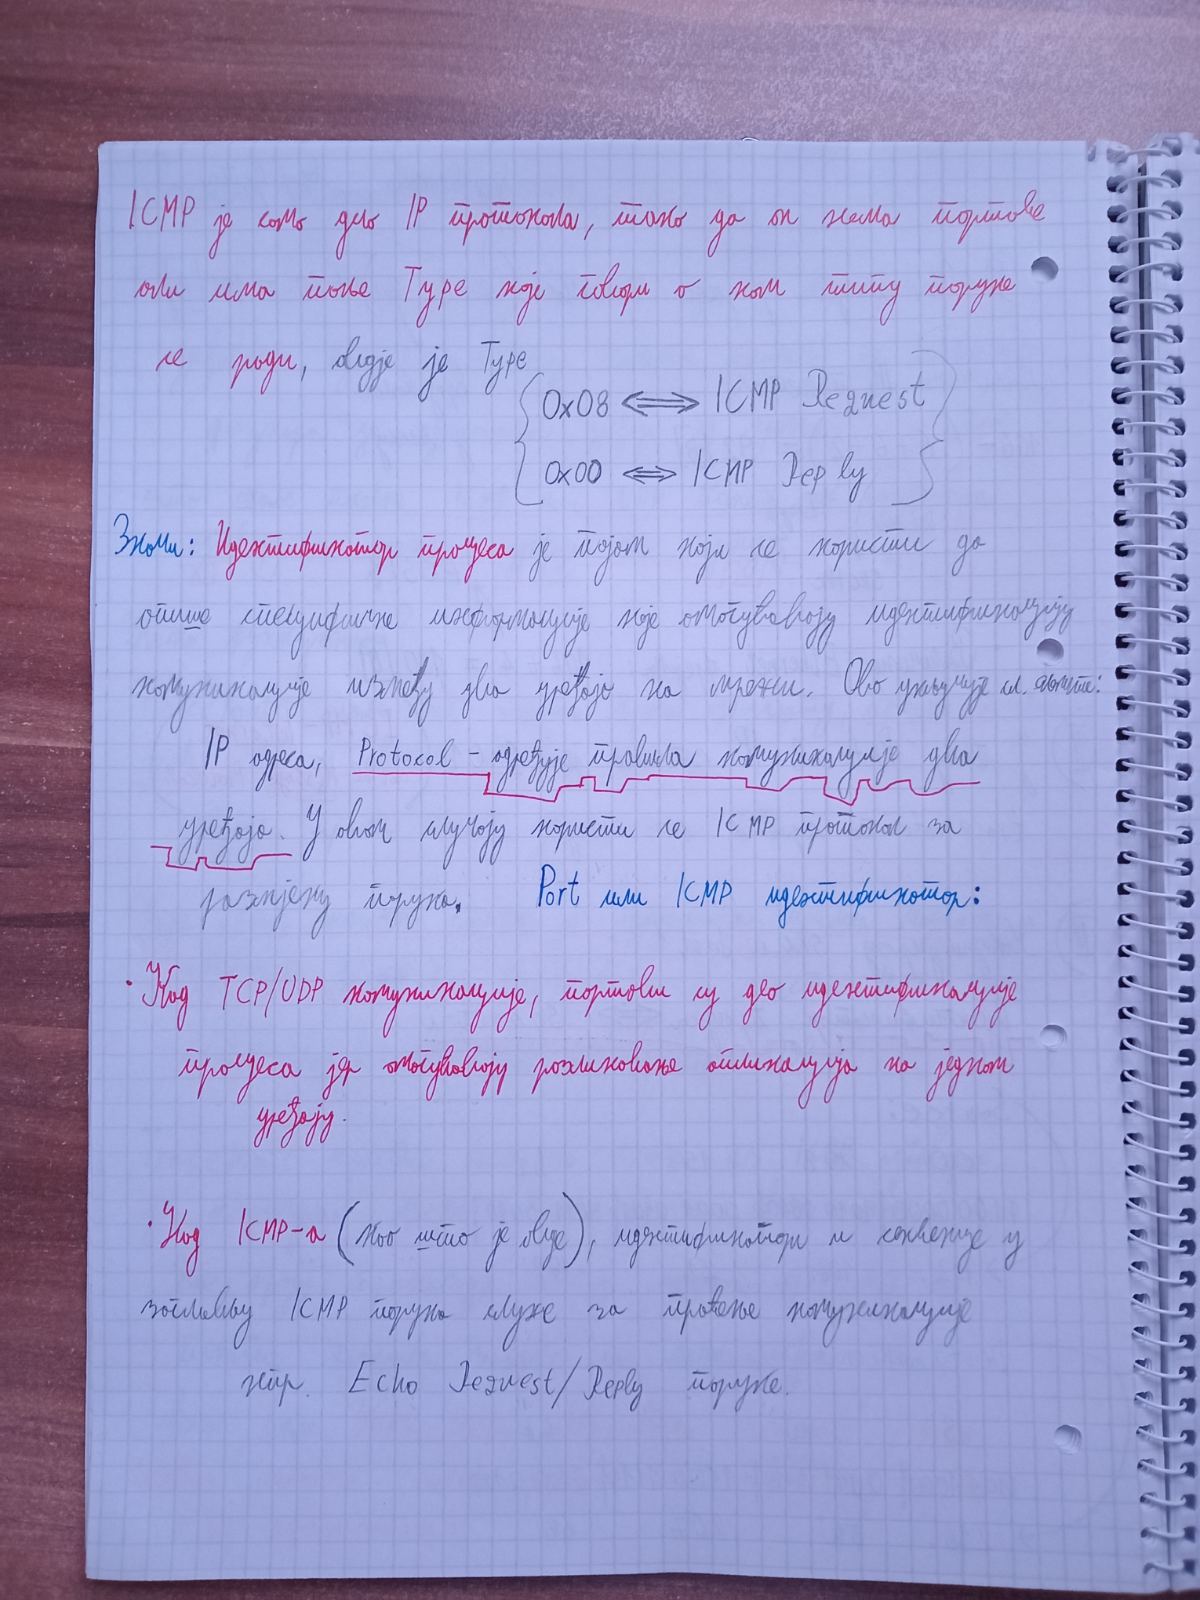 ICMP је само дио IP протокола, тако да он нема портове
али има поље Type које говори о ком типу поруке
се ради, овдје је Type
0x08 ⟺ ICMP Request
0x00 ⟺ ICMP Reply
Значи: Идентификатор процеса је појам који се користи да
опише специфичне информације које омогућавају идентификацију
комуникације између два уређаја на мрежи. Ово укључује сл.
IP адреса, Protocol - одређује правила комуникације два
уређаја. У овом случају користи се ICMP протокол за
размјену порука. Port или ICMP идентификатор:
· Код TCP/UDP комуникације, портови су део идентификације
процеса јер омогућавају разликовање апликација на једном
уређају.
· Код ICMP-а (као што је овде), идентификатори и секвенце у
заглављу ICMP порука служе за праћење комуникације
нпр. Echo Request/Reply поруке.